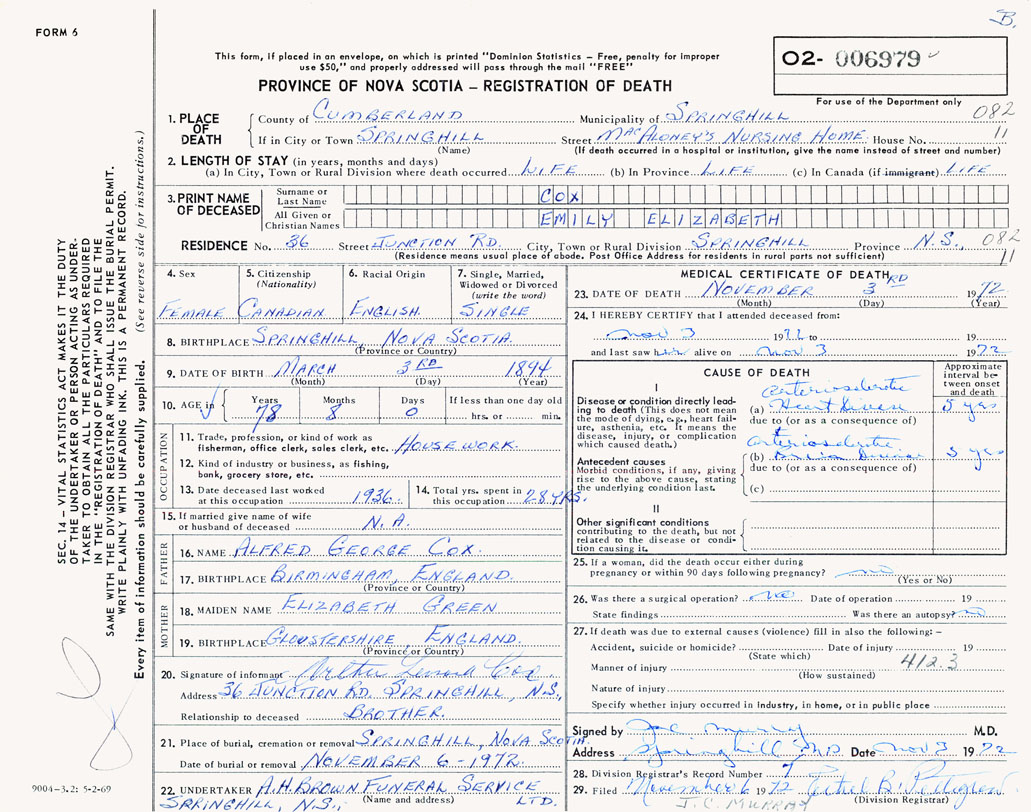 B.
FORM 6
This form, if placed in an envelope, on which is printed "Dominion Statistics – Free, penalty for improper
use $50," and properly addressed will pass through the mail "FREE"
02- 006979
PROVINCE OF NOVA SCOTIA – REGISTRATION OF DEATH
For use of the Department only
1. PLACE OF DEATH County of CUMBERLAND Municipality of SPRINGHILL 082
If in City or Town SPRINGHILL Street MACALONEY'S NURSING HOME House No. 11
(Name) (If death occurred in a hospital or institution, give the name instead of street and number)
2. LENGTH OF STAY (in years, months and days)
(a) In City, Town or Rural Division where death occurred LIFE (b) In Province LIFE (c) In Canada (if immigrant) LIFE
3. PRINT NAME OF DECEASED Surname or Last Name COX
All Given or Christian Names EMILY ELIZABETH
RESIDENCE No. 36 Street JUNCTION RD. City, Town or Rural Division SPRINGHILL Province N.S., 082
(Residence means usual place of abode. Post Office Address for residents in rural parts not sufficient) 11
SEC. 14 – VITAL STATISTICS ACT MAKES IT THE DUTY
OF THE UNDERTAKER OR PERSON ACTING AS UNDER-
TAKER TO OBTAIN ALL THE PARTICULARS REQUIRED
IN THE "REGISTRATION OF DEATH" AND TO FILE THE
SAME WITH THE DIVISION REGISTRAR WHO SHALL ISSUE THE BURIAL PERMIT.
WRITE PLAINLY WITH UNFADING INK. THIS IS A PERMANENT RECORD.
Every item of information should be carefully supplied. (See reverse side for instructions.)
4. Sex FEMALE
5. Citizenship (Nationality) CANADIAN
6. Racial Origin ENGLISH
7. Single, Married, Widowed or Divorced (write the word) SINGLE
8. BIRTHPLACE SPRINGHILL, NOVA SCOTIA.
(Province or Country)
9. DATE OF BIRTH MARCH 3RD 1894
(Month) (Day) (Year)
10. AGE in Years Months Days If less than one day old
78 8 0 hrs. or min.
OCCUPATION
11. Trade, profession, or kind of work as
fisherman, office clerk, sales clerk, etc. HOUSEWORK.
12. Kind of industry or business, as fishing,
bank, grocery store, etc.
13. Date deceased last worked at this occupation 1936
14. Total yrs. spent in this occupation 28 YRS.
15. If married give name of wife
or husband of deceased N.A.
FATHER
16. NAME ALFRED GEORGE COX.
17. BIRTHPLACE BIRMINGHAM, ENGLAND.
(Province or Country)
MOTHER
18. MAIDEN NAME ELIZABETH GREEN
19. BIRTHPLACE GLOUSTERSHIRE, ENGLAND.
(Province or Country)
20. Signature of informant Cox
Address 36 JUNCTION RD. SPRINGHILL, N.S.,
Relationship to deceased BROTHER.
21. Place of burial, cremation or removal SPRINGHILL, NOVA SCOTIA.
Date of burial or removal NOVEMBER 6-1972.
22. UNDERTAKER A.H. BROWN FUNERAL SERVICE LTD.
(Name and address)
SPRINGHILL, N.S.,
9004–3.2: 5-2-69
MEDICAL CERTIFICATE OF DEATH
23. DATE OF DEATH NOVEMBER 3RD 1972
(Month) (Day) (Year)
24. I HEREBY CERTIFY that I attended deceased from:
Nov 3 19 to
and last saw her alive on Nov 3 1972
CAUSE OF DEATH
Approximate interval between onset and death
I
Disease or condition directly leading to death (This does not mean the mode of dying, e.g., heart failure, asthenia, etc. It means the disease, injury, or complication which caused death.)
arteriosclerotic
(a) Heart Disease 5 yrs
due to (or as a consequence of)
arteriosclerotic
(b) Brain Disease 5 yrs
due to (or as a consequence of)
Antecedent causes
Morbid conditions, if any, giving rise to the above cause, stating the underlying condition last.
(c)
II
Other significant conditions
contributing to the death, but not related to the disease or condition causing it.
25. If a woman, did the death occur either during
pregnancy or within 90 days following pregnancy? no
(Yes or No)
26. Was there a surgical operation? no Date of operation 19
State findings Was there an autopsy no
27. If death was due to external causes (violence) fill in also the following: –
Accident, suicide or homicide? Date of injury 19
(State which)
Manner of injury 412.3
(How sustained)
Nature of injury
Specify whether injury occurred in industry, in home, or in public place
Signed by J.C. Murray M.D.
Address Springhill N.S. Date Nov 3 1972
28. Division Registrar's Record Number 7
29. Filed November 6 1972 Ethel B.
J. C. MURRAY (Division Registrar)